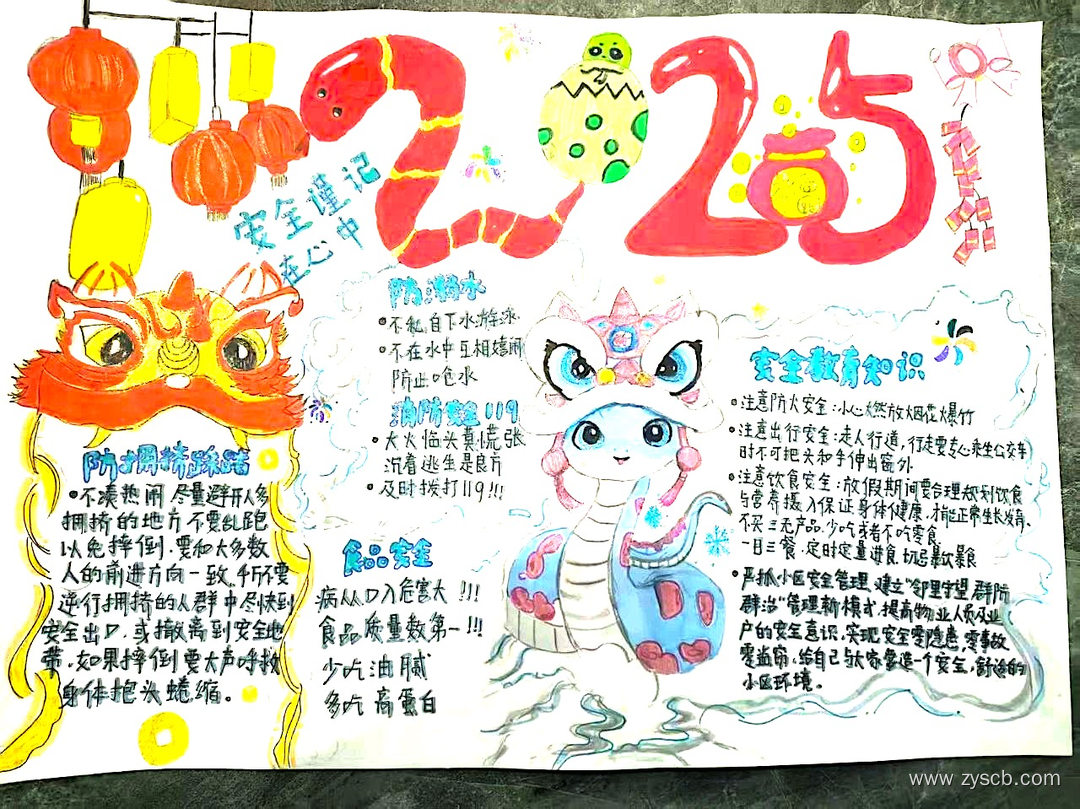 2025
安全谨记
在心中
防溺水
•不私自下水游泳
•不在水中互相嬉闹
防止呛水
消防安全119
•大火临头莫慌张
沉着逃生是良方
•及时拨打119!!!
防拥挤踩踏
•不凑热闹 尽量避开人多
拥挤的地方不要乱跑
以免摔倒.要和大多数
人的前进方向一致.千万不要
逆行拥挤的人群中尽快到
安全出口.或撤离到安全地
带.如果摔倒要大声呼救
身体抱头蜷缩。
食品安全
病从口入危害大 !!!
食品质量数第一!!!
少吃油腻
多吃高蛋白
安全教育知识
•注意防火安全:小心燃放烟花爆竹
•注意出行安全:走人行道,行走要专心乘坐公交车
时不可把头和手伸出窗外
•注意饮食安全:放假期间要合理规划饮食
与营养摄入保证身体健康,才能正常生长发育.
不买三无产品.少吃或者不吃零食
一日三餐.定时定量进食.切忌暴饮暴食
•严抓小区安全管理.建立"邻里守望.群防
群治"管理新模式.提高物业人员及业
户的安全意识.实现安全零隐患.零事故
零盗窃.给自己与大家营造一个安全.舒适的
小区环境。
www.zyscb.com